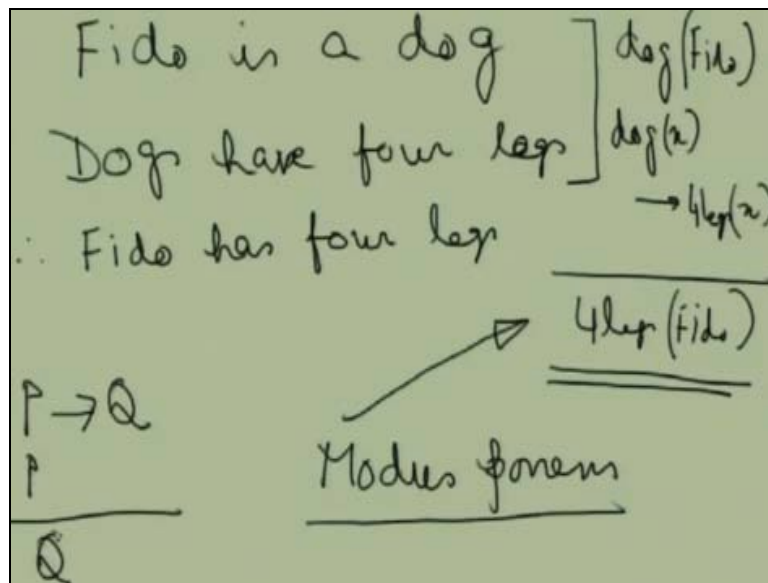 Fido is a dog
Dogs have four legs
∴ Fido has four legs
dog(Fido)
dog(x)
→ 4legs(x)
4legs(Fido)
P → Q
P
Q
Modus ponens